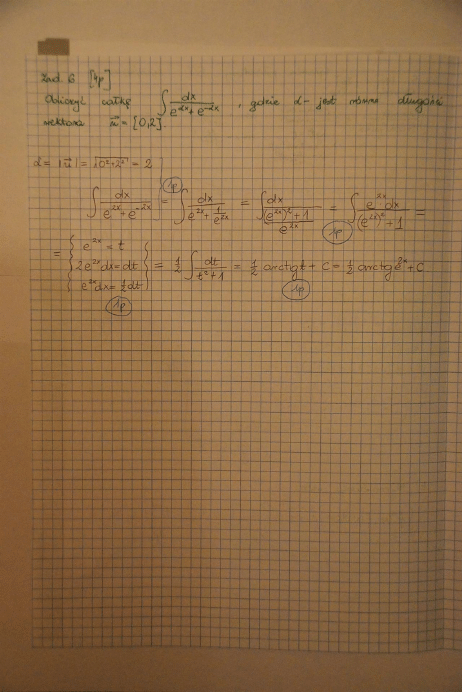 Zad. 6 [4p]
Obliczyć całkę ∫ dx / (e^{αx} + e^{-αx}), gdzie α - jest równe długości
wektora u⃗ = [0,2].
α = |u⃗| = √(0²+2²) = 2
∫ dx / (e^{2x} + e^{-2x}) = (1p) ∫ dx / (e^{2x} + 1/e^{2x}) = ∫ dx / (((e^{2x})² + 1) / e^{2x}) = (1p) ∫ e^{2x}dx / ((e^{2x})² + 1) =
= { e^{2x} = t
2e^{2x}dx = dt } = 1/2 ∫ dt / (t²+1) = 1/2 arctgt + C = 1/2 arctge^{2x} + C
e^{2x}dx = 1/2 dt
(1p) (1p)